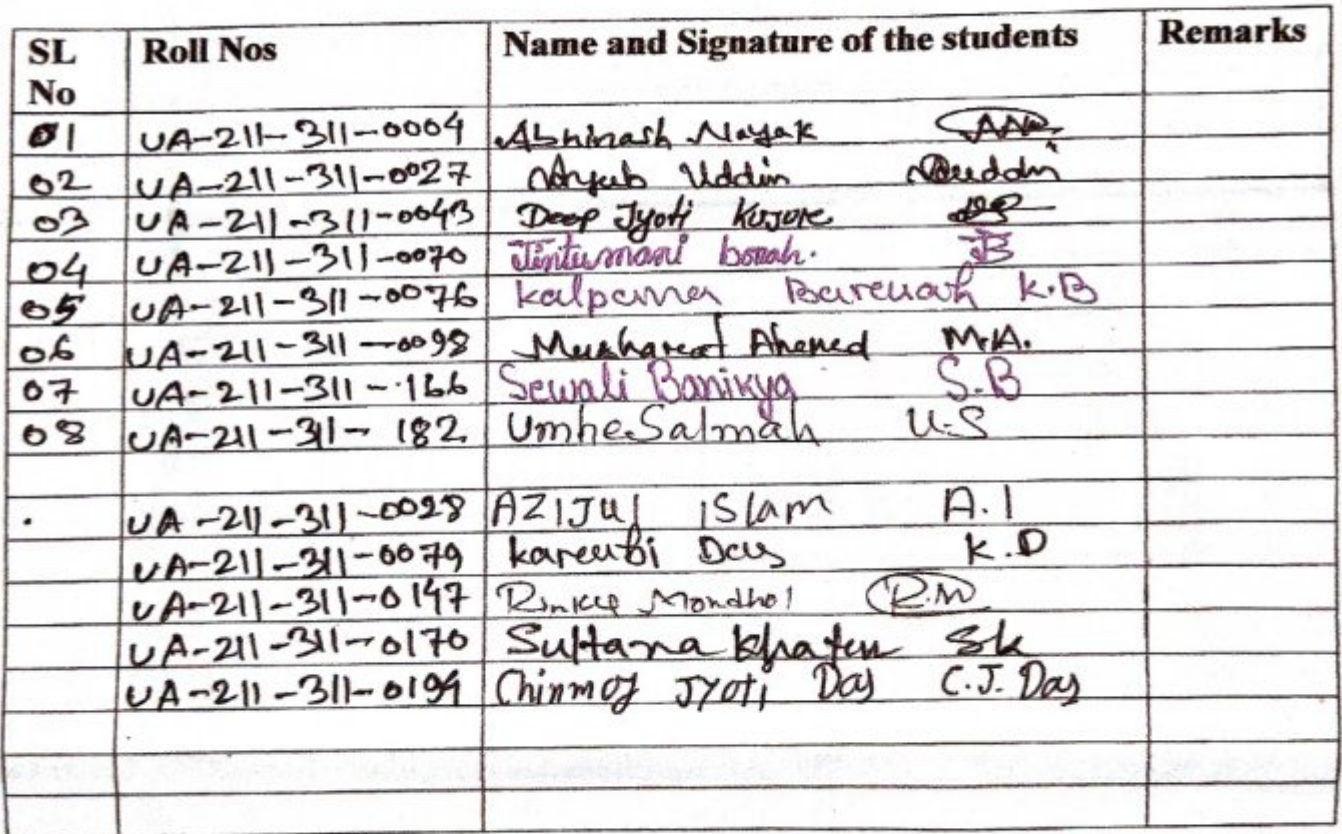 SL No Roll Nos Name and Signature of the students Remarks
01 UA-211-311-0004 Abhinash Nayak
02 UA-211-311-0027 Ayub Uddin Auddin
03 UA-211-311-0043 Deep Jyoti Kujur
04 UA-211-311-0070 Jintumani borah. JB
05 UA-211-311-0076 kalpana Baruah K.B
06 UA-211-311-0098 Musharaf Ahemed M.A.
07 UA-211-311-166 Sewali Banikya S.B
08 UA-211-311-182 Umhe Salmah U.S
UA-211-311-0028 AZIJUl ISlam A.I
UA-211-311-0079 karubi Das K.D
UA-211-311-0147 Rinku Mondhol R.M
UA-211-311-0170 Sultana Khatun Sk
UA-211-311-0194 Chinmoy JYoti Das C.J. Das